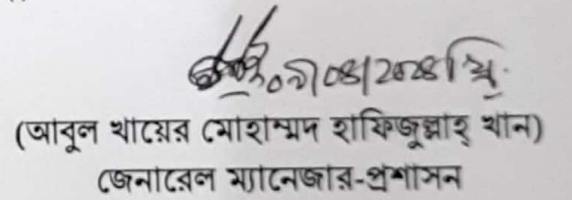 ০৯/০৪/২০২৪ খ্রি.
(আবুল খায়ের মোহাম্মদ হাফিজুল্লাহ্ খান)
জেনারেল ম্যানেজার-প্রশাসন